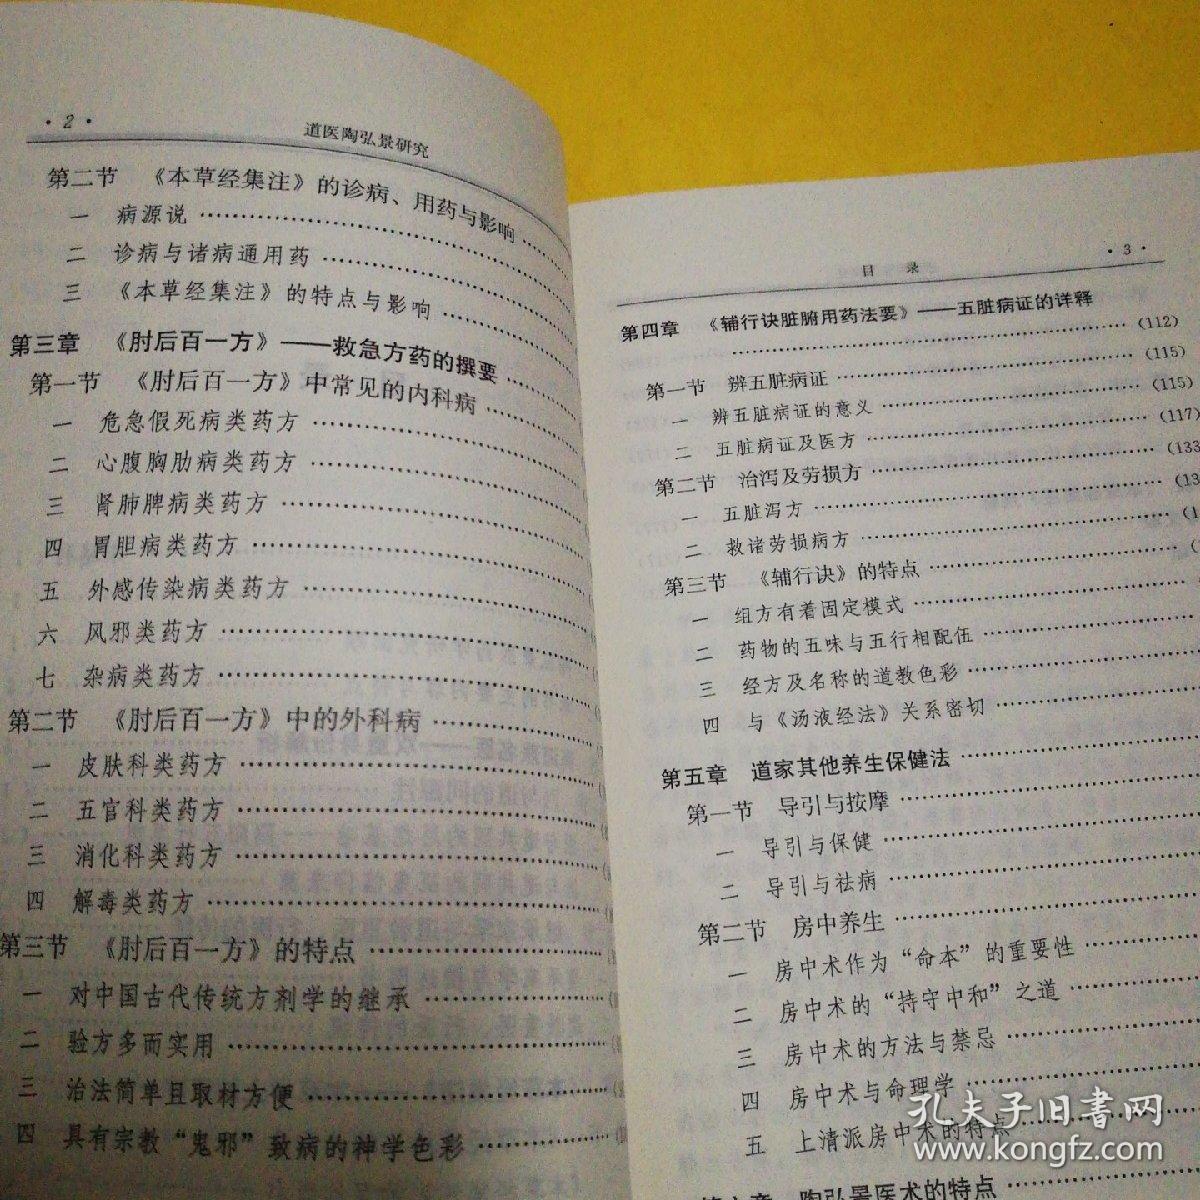 · 2 ·
道医陶弘景研究
第二节 《本草经集注》的诊病、用药与影响
一 病源说
二 诊病与诸病通用药
三 《本草经集注》的特点与影响
第三章 《肘后百一方》——救急方药的撰要
第一节 《肘后百一方》中常见的内科病
一 危急假死病类药方
二 心腹胸肋病类药方
三 肾肺脾病类药方
四 胃胆病类药方
五 外感传染病类药方
六 风邪类药方
七 杂病类药方
第二节 《肘后百一方》中的外科病
一 皮肤科类药方
二 五官科类药方
三 消化科类药方
四 解毒类药方
第三节 《肘后百一方》的特点
一 对中国古代传统方剂学的继承
二 验方多而实用
三 治法简单且取材方便
四 具有宗教“鬼邪”致病的神学色彩
目 录
· 3 ·
第四章 《辅行诀脏腑用药法要》——五脏病证的详释
(112)
第一节 辨五脏病证 (115)
一 辨五脏病证的意义 (115)
二 五脏病证及医方 (117)
第二节 治泻及劳损方 (133
一 五脏泻方
二 救诸劳损病方
第三节 《辅行诀》的特点
一 组方有着固定模式
二 药物的五味与五行相配伍
三 经方及名称的道教色彩
四 与《汤液经法》关系密切
第五章 道家其他养生保健法
第一节 导引与按摩
一 导引与保健
二 导引与祛病
第二节 房中养生
一 房中术作为“命本”的重要性
二 房中术的“持守中和”之道
三 房中术的方法与禁忌
四 房中术与命理学
五 上清派房中术的特点
第六章 陶弘景医术的特点
孔夫子旧书网
www.kongfz.com